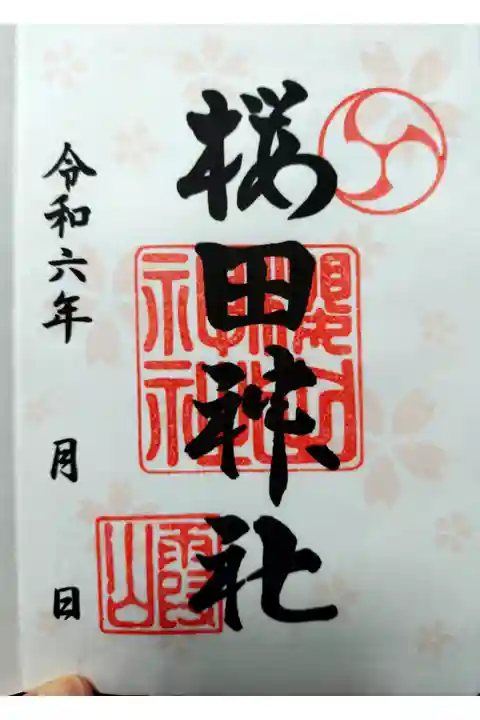 桜田神社
令和六年 月 日
櫻田
神社
霞山